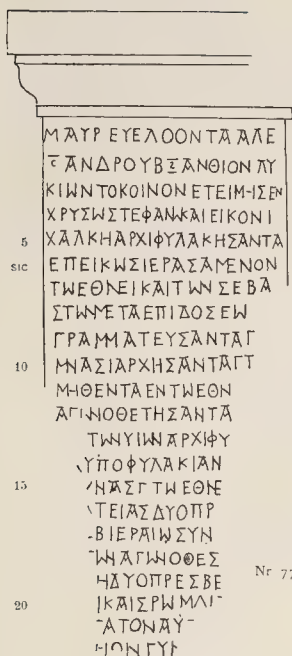 ΜΑΥΡ ΕΥΕΛΘΟΝΤΑ ΑΛΕ
ΞΑΝΔΡΟΥ Β ΞΑΝΘΙΟΝ ΛΥ
ΚΙΩΝ ΤΟ ΚΟΙΝΟΝ ΕΤΕΙΜΗΣΕΝ
ΧΡΥΣΩ ΣΤΕΦΑΝΩ ΚΑΙ ΕΙΚΟΝΙ
5 ΧΑΛΚΗ ΑΡΧΙΦΥΛΑΚΗΣΑΝΤΑ
SIC ΕΠΕΙΚΩΣ ΙΕΡΑΣΑΜΕΝΟΝ
ΤΩ ΕΘΝΕΙ ΚΑΙ ΤΩΝ ΣΕΒΑ
ΣΤΩΝ ΜΕΤΑ ΕΠΙΔΟΣΕΩ
ΓΡΑΜΜΑΤΕΥΣΑΝΤΑ Γ
10 ΜΝΑΣΙΑΡΧΗΣΑΝΤΑ
ΜΗΘΕΝΤΑ ΕΝ ΤΩ ΕΘΝ
ΑΓΩΝΟΘΕΤΗΣΑΝΤΑ
ΤΩΝ ΥΙΩΝ ΑΡΧΙΦΥ
ΥΠΟΦΥΛΑΚΙΑΝ
15 ΝΑΣ Γ ΤΩ ΕΘΝΕ
ΤΕΙΑΣ ΔΥΟ ΠΡ
Β ΙΕΡΑΙΩ ΣΥΝ
ΩΝ ΑΓΩΝΟΘΕΣ
Nr 77
Η ΔΥΟ ΠΡΕΣΒΕ
20 ΚΑΙΣ ΡΩΜΛΙ
ΑΤΟΝ ΑΥ
ΙΟΝ ΓΥ